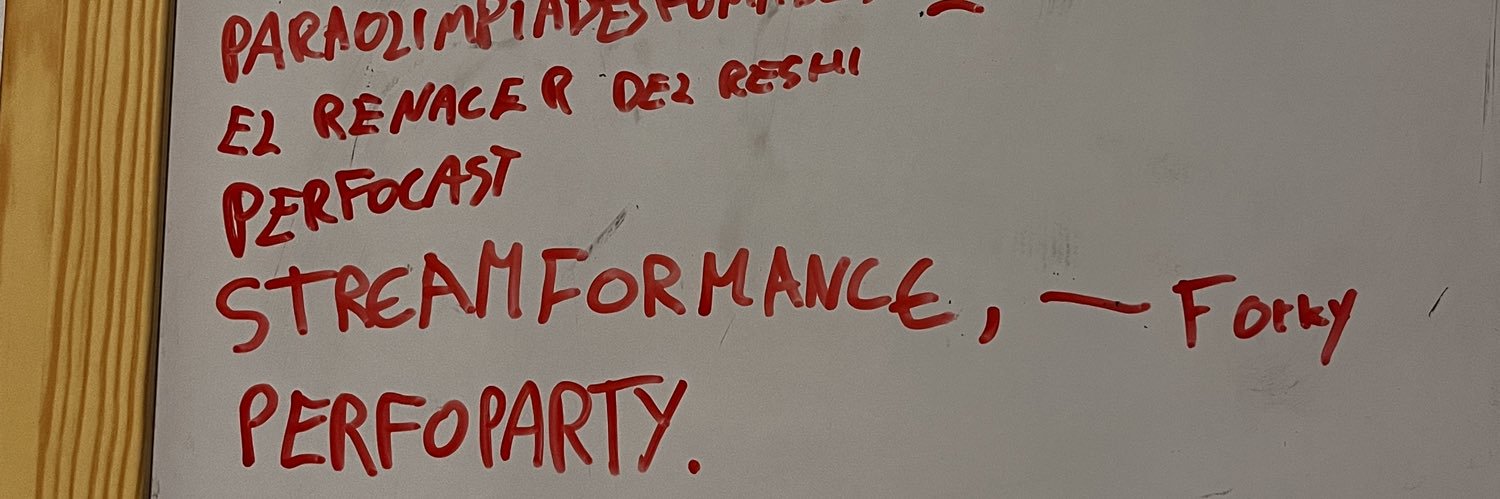 EL RENACER DEL RESHI
PERFOCAST
STREAMFORMANCE, — Forky
PERFOPARTY.